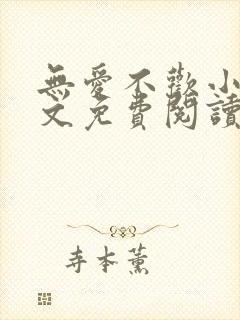 無愛不歡小
文免費閱讀
寺本薰